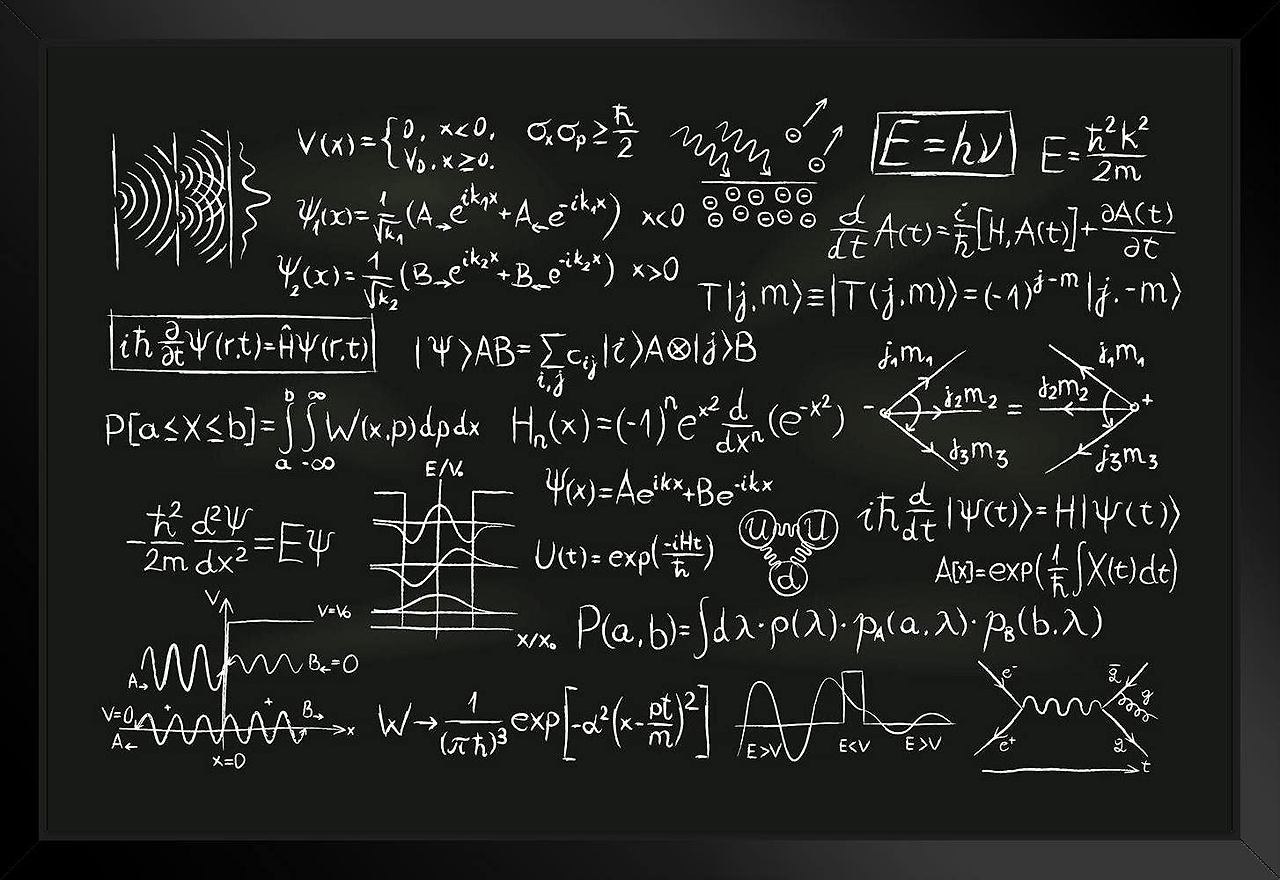 V(x)={0, x<0, V₀, x≥0.
σₓσₚ≥ħ/2
E=hν
E=ħ²k²/2m
ψ₁(x)=1/√k₁(A→e^{ik₁x}+A←e^{-ik₁x}) x<0
d/dt A(t)=i/ħ[H,A(t)]+∂A(t)/∂t
ψ₂(x)=1/√k₂(B→e^{ik₂x}+B←e^{-ik₂x}) x>0
T|j,m⟩≡|T(j,m)⟩=(-1)^{j-m}|j,-m⟩
iħ ∂/∂t Ψ(r,t)=ĤΨ(r,t)
|Ψ⟩AB=∑_{i,j} c_{ij}|i⟩A⊗|j⟩B
j₁m₁ j₁m₁
- j₂m₂ = j₂m₂ +
j₃m₃ j₃m₃
P[a≤X≤b]=∫_a^b ∫_{-∞}^{∞} W(x,p)dpdx
Hₙ(x)=(-1)ⁿe^{x²} d/dxⁿ (e^{-x²})
E/V₀
ψ(x)=Ae^{ikx}+Be^{-ikx}
-ħ²/2m d²Ψ/dx²=EΨ
U(t)=exp(-iHt/ħ)
U U
d
iħ d/dt |Ψ(t)⟩=H|Ψ(t)⟩
A[x]=exp(1/ħ ∫X(t)dt)
x/x₀
P(a,b)=∫dλ·ρ(λ)·p_A(a,λ)·p_B(b,λ)
V
V=V₀
A→ B←=0
V=0 + + B→
A← x
x=0
W→1/(πħ)³ exp[-α²(x-pt/m)²]
E>V E<V E>V
e⁻ q̄
g
e⁺ q
t